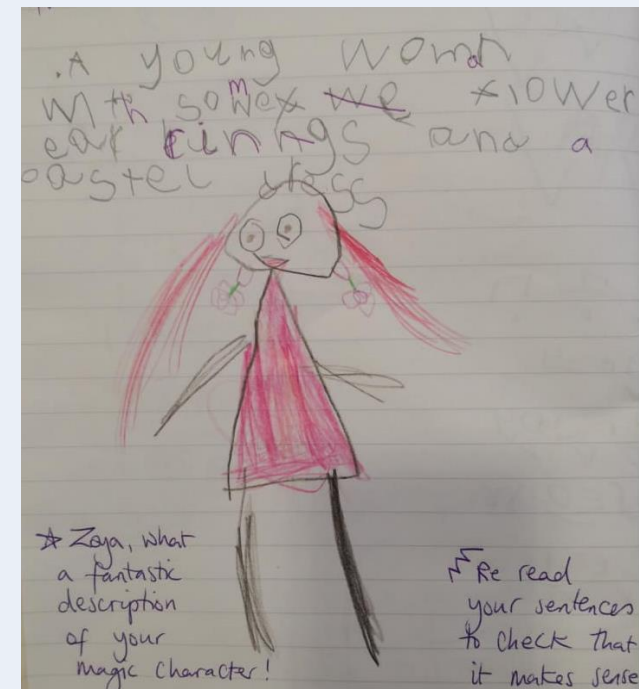 .A young woman
with somex we flower
ear rinngs and a
pastel dress
☆ Zoya, what
a fantastic
description
of your
magic character!
Re read
your sentences
to check that
it makes sense